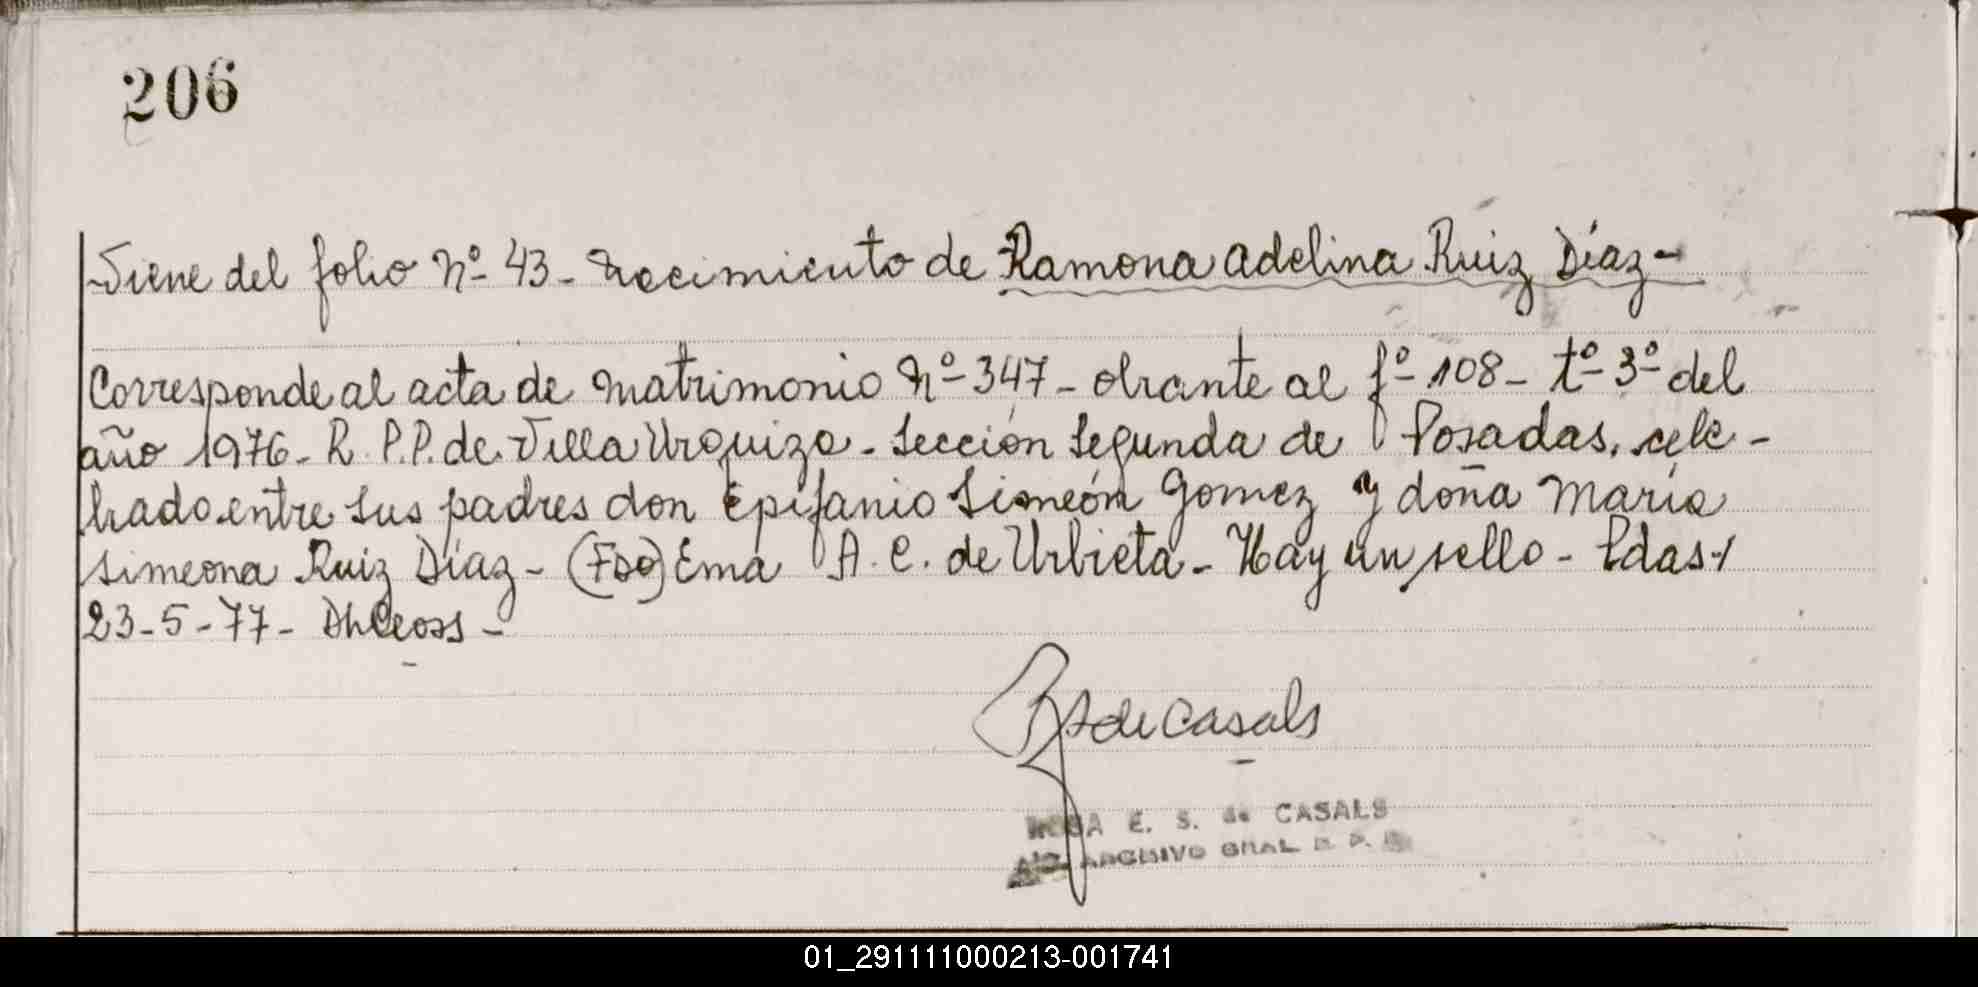 206
Viene del folio Nº 43 - Nacimiento de Ramona Adelina Ruiz Díaz -
Corresponde al acta de Matrimonio Nº 347 - obrante al fº 108 - tº 3º del
año 1976 - R. P.P. de Villa Urquiza - Sección Segunda de Posadas, cele -
brado entre sus padres don Epifanio Simeón Gomez y doña María
Simeona Ruiz Díaz - (Fdo) Ema A. C. de Urbieta - Hay un sello - Pdas.
23 - 5 - 77 -
de Casals
E. S. de CASALS
ARCHIVO GRAL R. P.
01_291111000213-001741